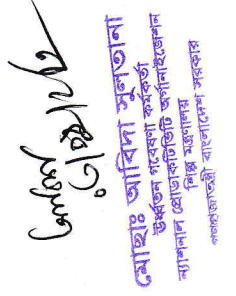 মোছাঃ আবিদা সুলতানা
উর্ধ্বতন গবেষণা কর্মকর্তা
ন্যাশনাল প্রোডাকটিভিটি অর্গানাইজেশন
শিল্প মন্ত্রণালয়
গণপ্রজাতন্ত্রী বাংলাদেশ সরকার